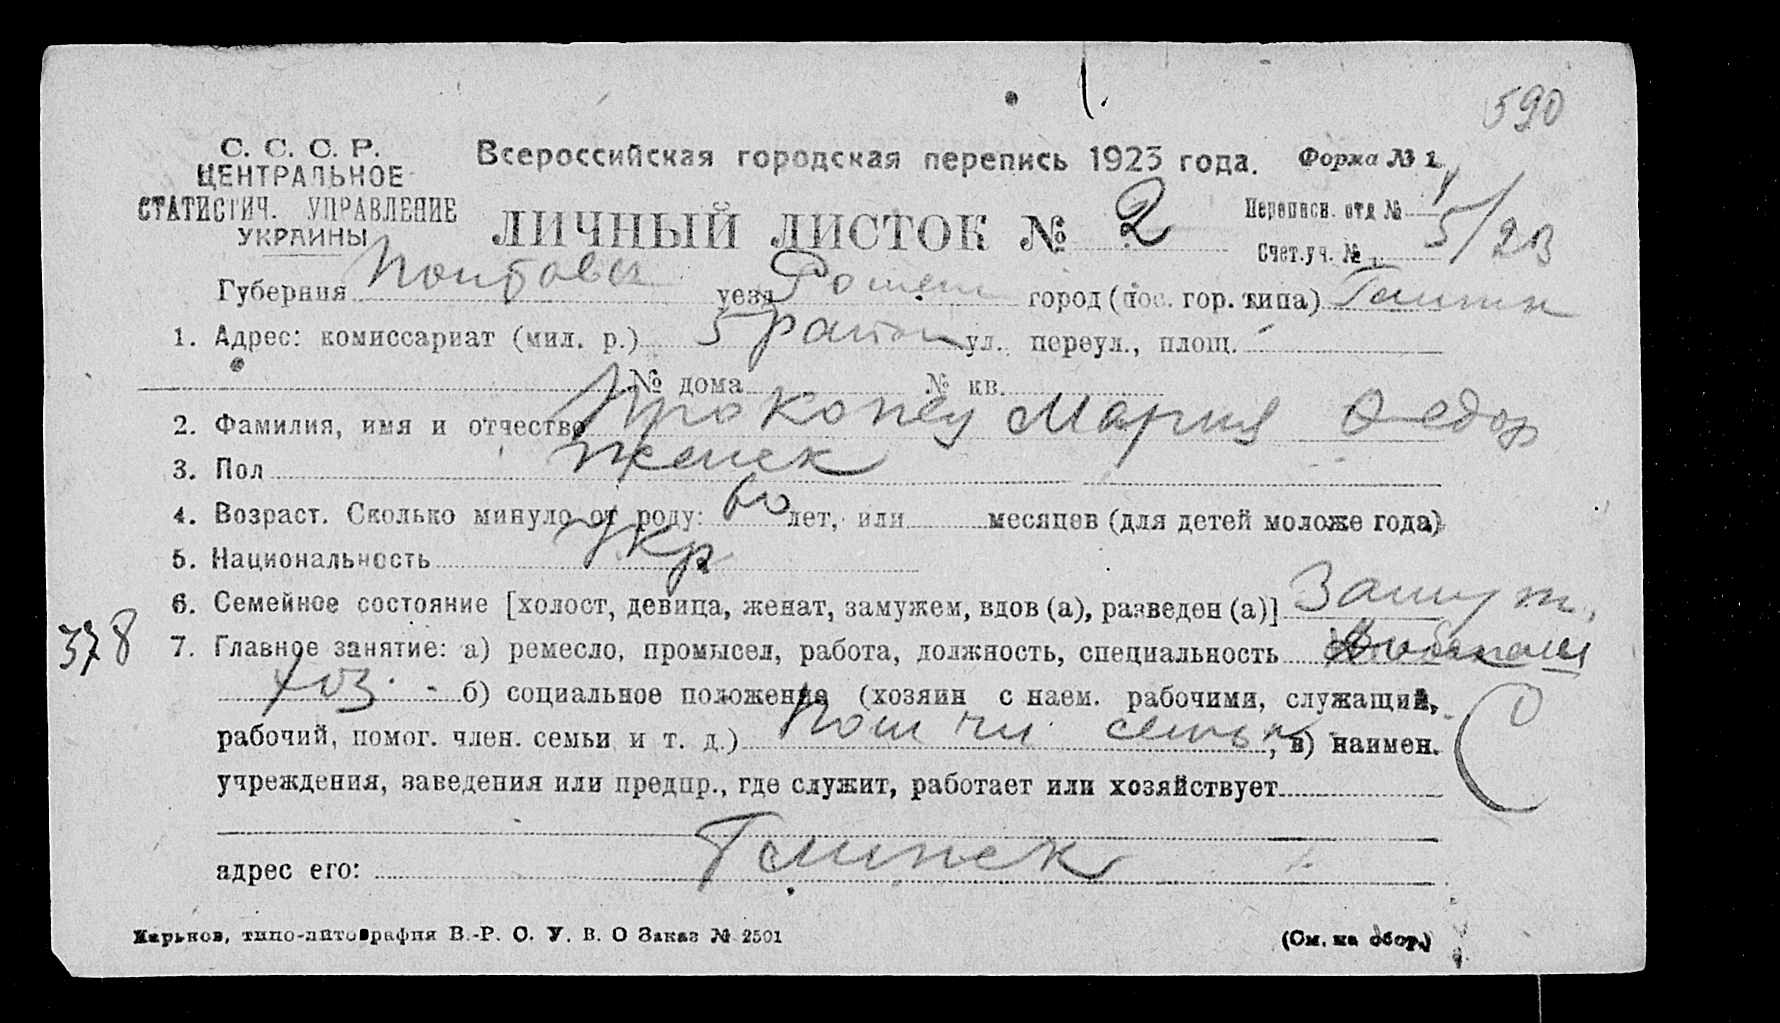 590
С. С. С. Р.
ЦЕНТРАЛЬНОЕ
СТАТИСТИЧ. УПРАВЛЕНИЕ
УКРАИНЫ
Всероссийская городская перепись 1923 года. Форма № 1
ЛИЧНЫЙ ЛИСТОК № 2
Переписн. отд №
Счет.уч. № 5/23
Губерния Полтава уезд Ромен город (пос. гор. типа)
1. Адрес: комиссариат (мил. р.) 5 район ул., переул., площ.
№ дома № кв.
2. Фамилия, имя и отчество Прокопец Мария Федор
3. Пол Женск
4. Возраст. Сколько минуло от роду: 60 лет, или месяцев (для детей моложе года)
5. Национальность Укр
6. Семейное состояние [холост, девица, женат, замужем, вдов (а), разведен (а)] Замуж.
378
7. Главное занятие: а) ремесло, промысел, работа, должность, специальность
хоз. - б) социальное положение (хозяин с наем. рабочими, служащий,
рабочий, помог. член. семьи и т. д.) Пом чл семьи, в) наимен.
учреждения, заведения или предпр., где служит, работает или хозяйствует
адрес его:
Харьков, типо-литография В.-Р. С. У. В. О Заказ № 2501
(См. на обор.)